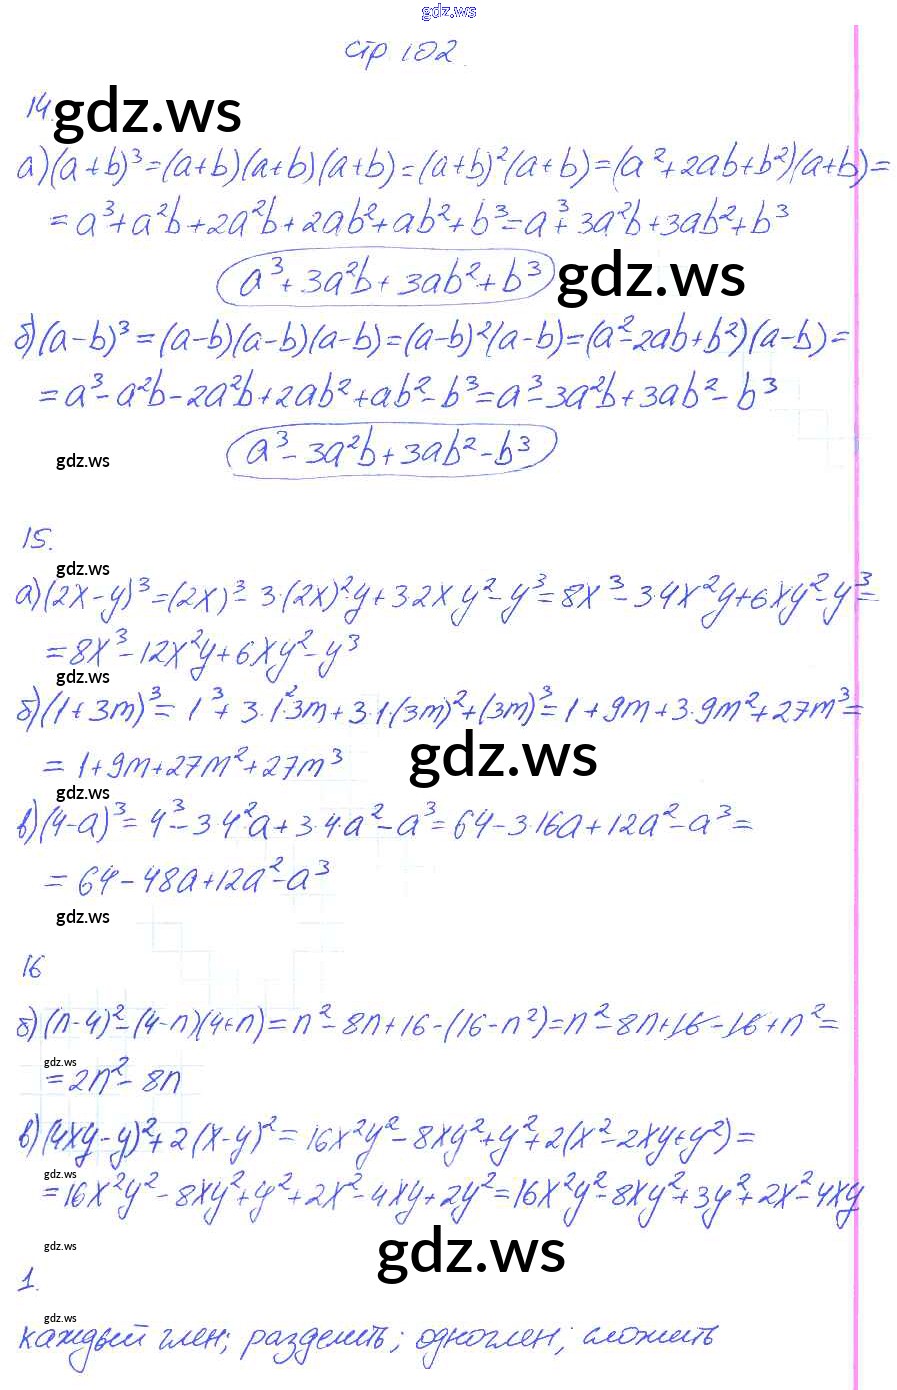 gdz.ws
стр 102.
14. gdz.ws
а)(a+b)³=(a+b)(a+b)(a+b)=(a+b)²(a+b)=(a²+2ab+b²)(a+b)=
=a³+a²b+2a²b+2ab²+ab²+b³=a³+3a²b+3ab²+b³
a³+3a²b+3ab²+b³ gdz.ws
б)(a-b)³=(a-b)(a-b)(a-b)=(a-b)²(a-b)=(a²-2ab+b²)(a-b)=
=a³-a²b-2a²b+2ab²+ab²-b³=a³-3a²b+3ab²-b³
gdz.ws a³-3a²b+3ab²-b³
15.
gdz.ws
а)(2x-y)³=(2x)³-3·(2x)²·y+3·2x y²-y³=8x³-3·4x²y+6xy²-y³=
=8x³-12x²y+6xy²-y³
gdz.ws
б)(1+3m)³=1³+3·1²·3m+3·1·(3m)²+(3m)³=1+9m+3·9m²+27m³=
=1+9m+27m²+27m³ gdz.ws
gdz.ws
в)(4-a)³=4³-3·4²a+3·4·a²-a³=64-3·16a+12a²-a³=
=64-48a+12a²-a³
gdz.ws
16
б)(n-4)²-(4-n)(4+n)=n²-8n+16-(16-n²)=n²-8n+16-16+n²=
gdz.ws
=2n²-8n
в)(4xy-y)²+2(x-y)²=16x²y²-8xy²+y²+2(x²-2xy+y²)=
gdz.ws
=16x²y²-8xy²+y²+2x²-4xy+2y²=16x²y²-8xy²+3y²+2x²-4xy
gdz.ws gdz.ws
1.
gdz.ws
каждый член; разделить; одночлен; сложить